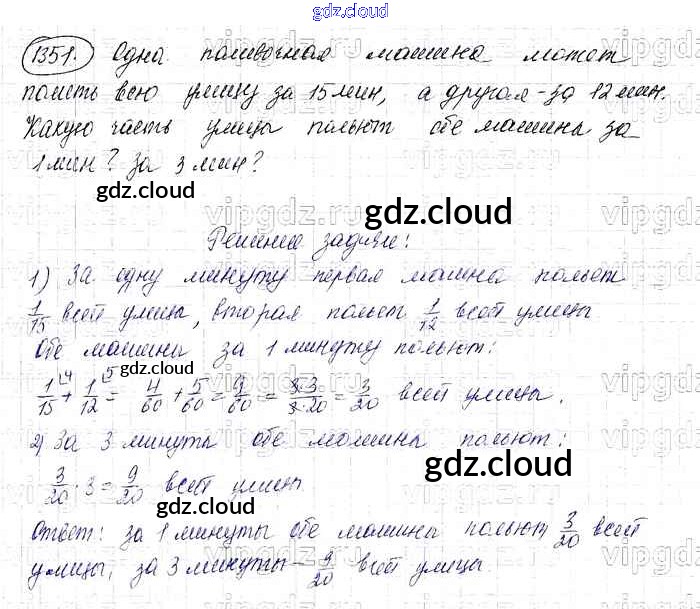 gdz.cloud
1351. Одна поливочная машина может
полить всю улицу за 15 мин, а другая - за 12 мин.
Какую часть улицы польют обе машины за
1 мин? за 3 мин?
gdz.cloud
gdz.cloud
Решение задачи:
1) За одну минуту первая машина польет
1/15 всей улицы, вторая польет 1/12 всей улицы
Обе машины за 1 минуту польют:
gdz.cloud
1/15 + 1/12 = 4/60 + 5/60 = 9/60 = 3·3/3·20 = 3/20 всей улицы.
2) За 3 минуты обе машины польют:
gdz.cloud
3/20 · 3 = 9/20 всей улицы
Ответ: за 1 минуты обе машины польют 3/20 всей
улицы, за 3 минуты - 9/20 всей улицы.
gdz.cloud